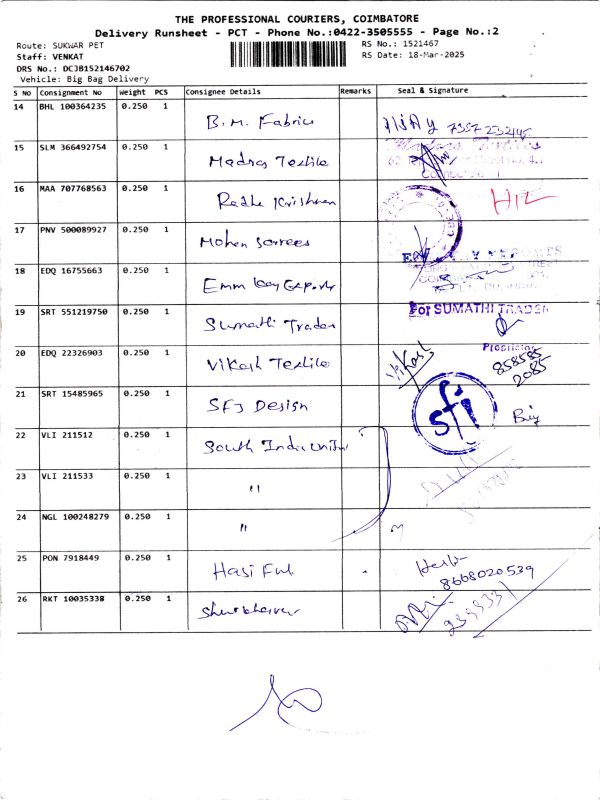 THE PROFESSIONAL COURIERS, COIMBATORE
Delivery Runsheet - PCT - Phone No.:0422-3505555 - Page No.:2
Route: SUKWAR PET
RS No.: 1521467
Staff: VENKAT
RS Date: 18-Mar-2025
DRS No.: DCJB152146702
Vehicle: Big Bag Delivery
S No Consignment No Weight PCS Consignee Details Remarks Seal & Signature
14 BHL 100364235 0.250 1 B.M. Fabrics VIJAY
15 SLM 366492754 0.250 1 Madras Textile
16 MAA 707768563 0.250 1 Radha Krishnan
17 PNV 500089927 0.250 1 Mohen Sarees
18 EDQ 16755663 0.250 1 Emm Kay Exports
19 SRT 551219750 0.250 1 Sumathi Trader For SUMATHI TRADER
Proprietor
20 EDQ 22326903 0.250 1 Vikash Textile Vikash 858585
2085
21 SRT 15485965 0.250 1 SFJ Design sfj
22 VLI 211512 0.250 1 South India
23 VLI 211533 0.250 1 "
24 NGL 100248279 0.250 1 "
25 PON 7918449 0.250 1 Hasi 8668020539
26 RKT 10035338 0.250 1